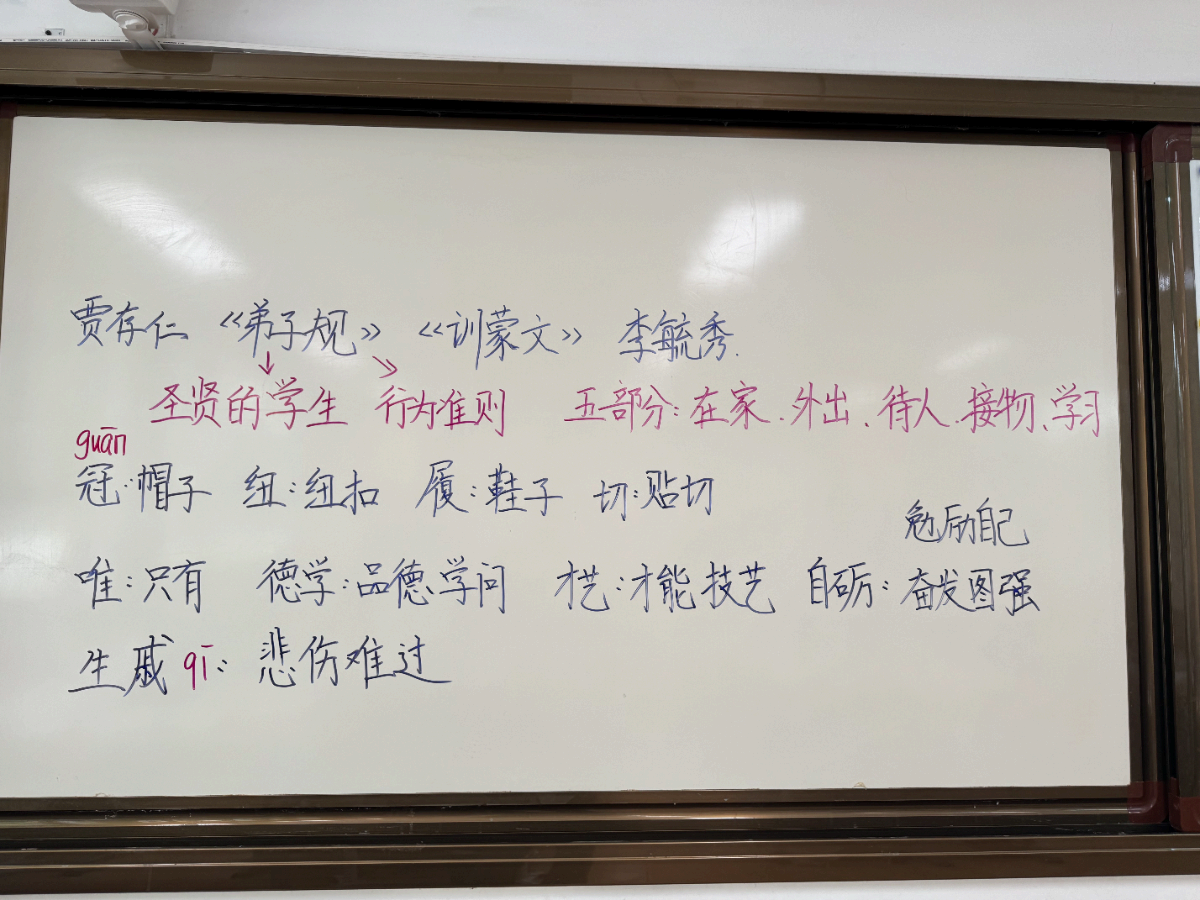 贾存仁 《弟子规》 《训蒙文》 李毓秀.
↓ ↘
圣贤的学生 行为准则 五部分:在家、外出、待人、接物、学习
guān
冠:帽子 纽:纽扣 履:鞋子 切:贴切
勉励自己
唯:只有 德学:品德、学问 才艺:才能技艺 自砺:奋发图强
生戚qī:悲伤难过